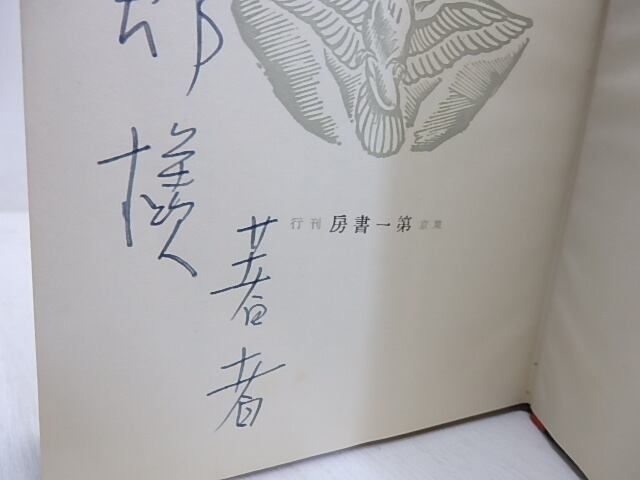 郎様
著者
行刊 房書一第 京東